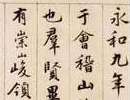 永和九年
于會稽山
也羣賢畢
有崇山峻領